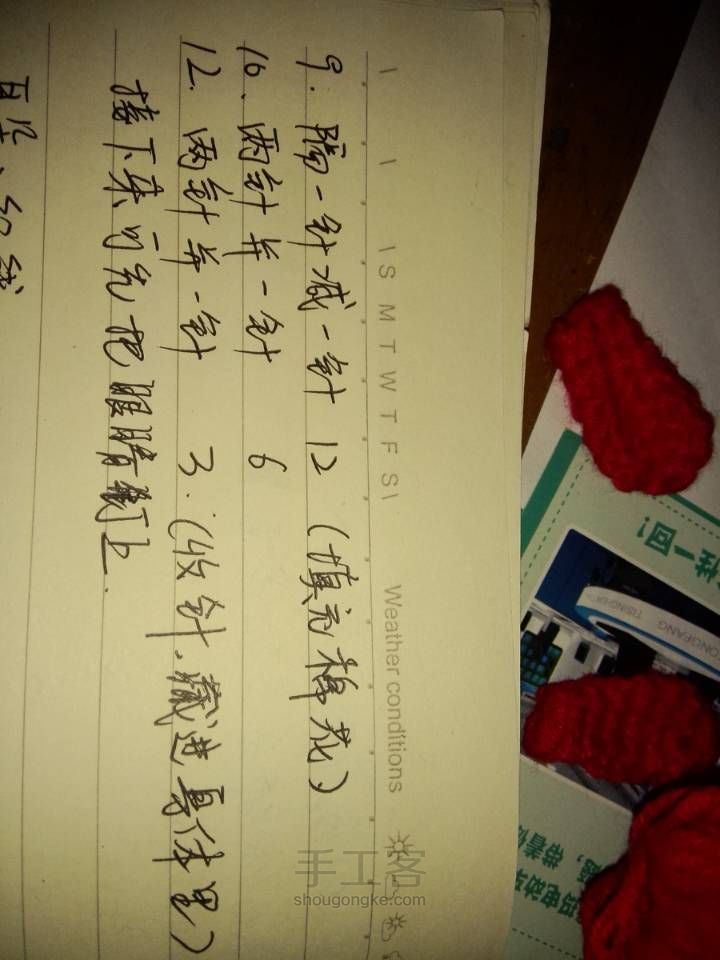 I I I S M T W T F S I Weather conditions
9. 隔一针减一针 12 (填充棉花)
10、两针并一针 6
12. 两针并一针 3.(收针.藏进身体里)
接下来可先把眼睛钉上.
往一回!
TISINGHO
ONGFANG
手工客
shougongke.com